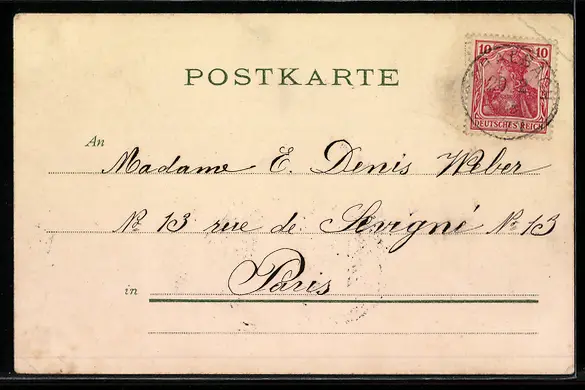 POSTKARTE
10 10
DEUTSCHES REICH
An
Madame E. Denis Weber
No 13 rue de Sévigné No 13
in Paris